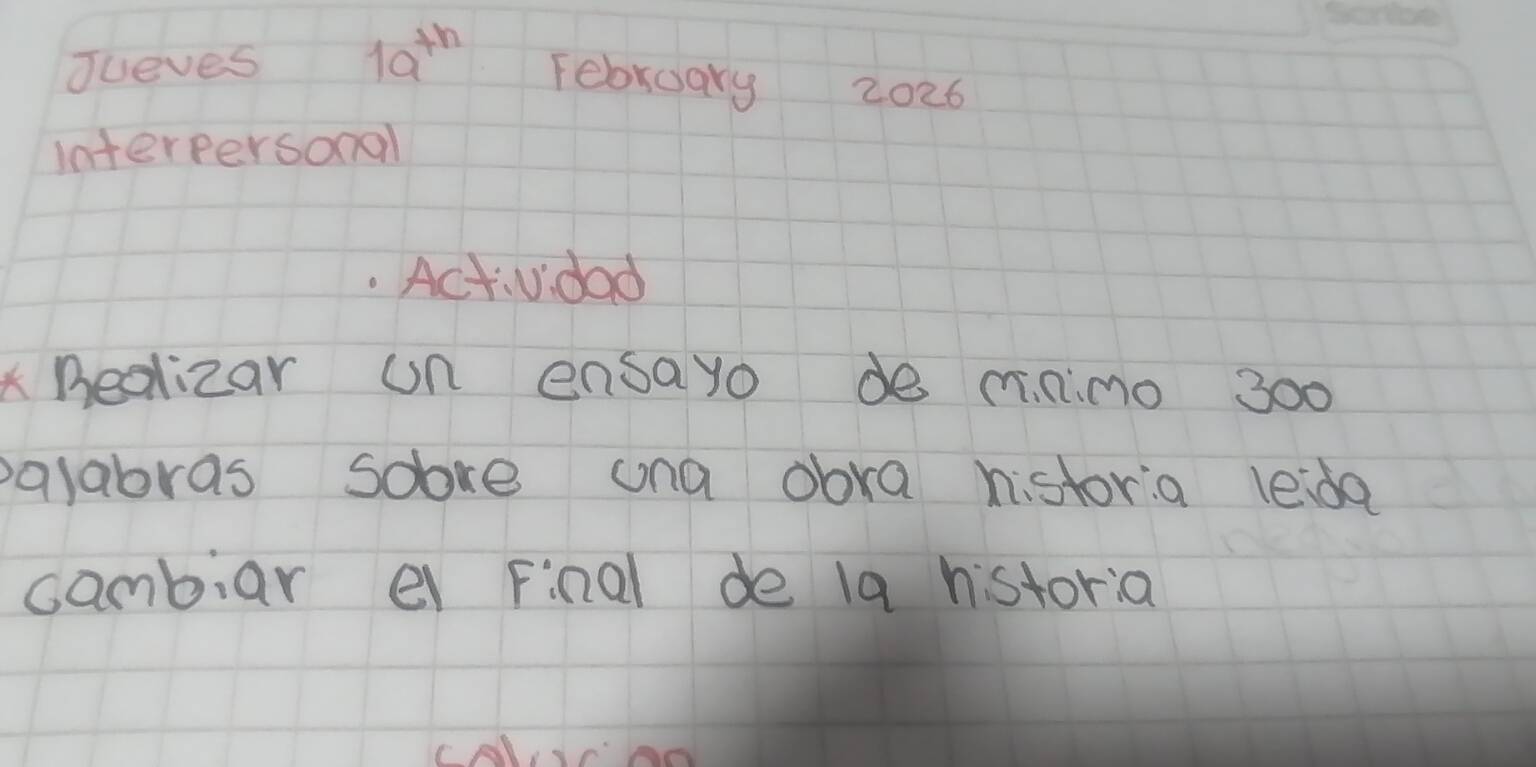 Jueves 19th February 2026
Interpersonal
. Actividad
* Realizar un ensayo de minimo 300
palabras sobre una obra historia leida
cambiar el Final de la historia
solucion